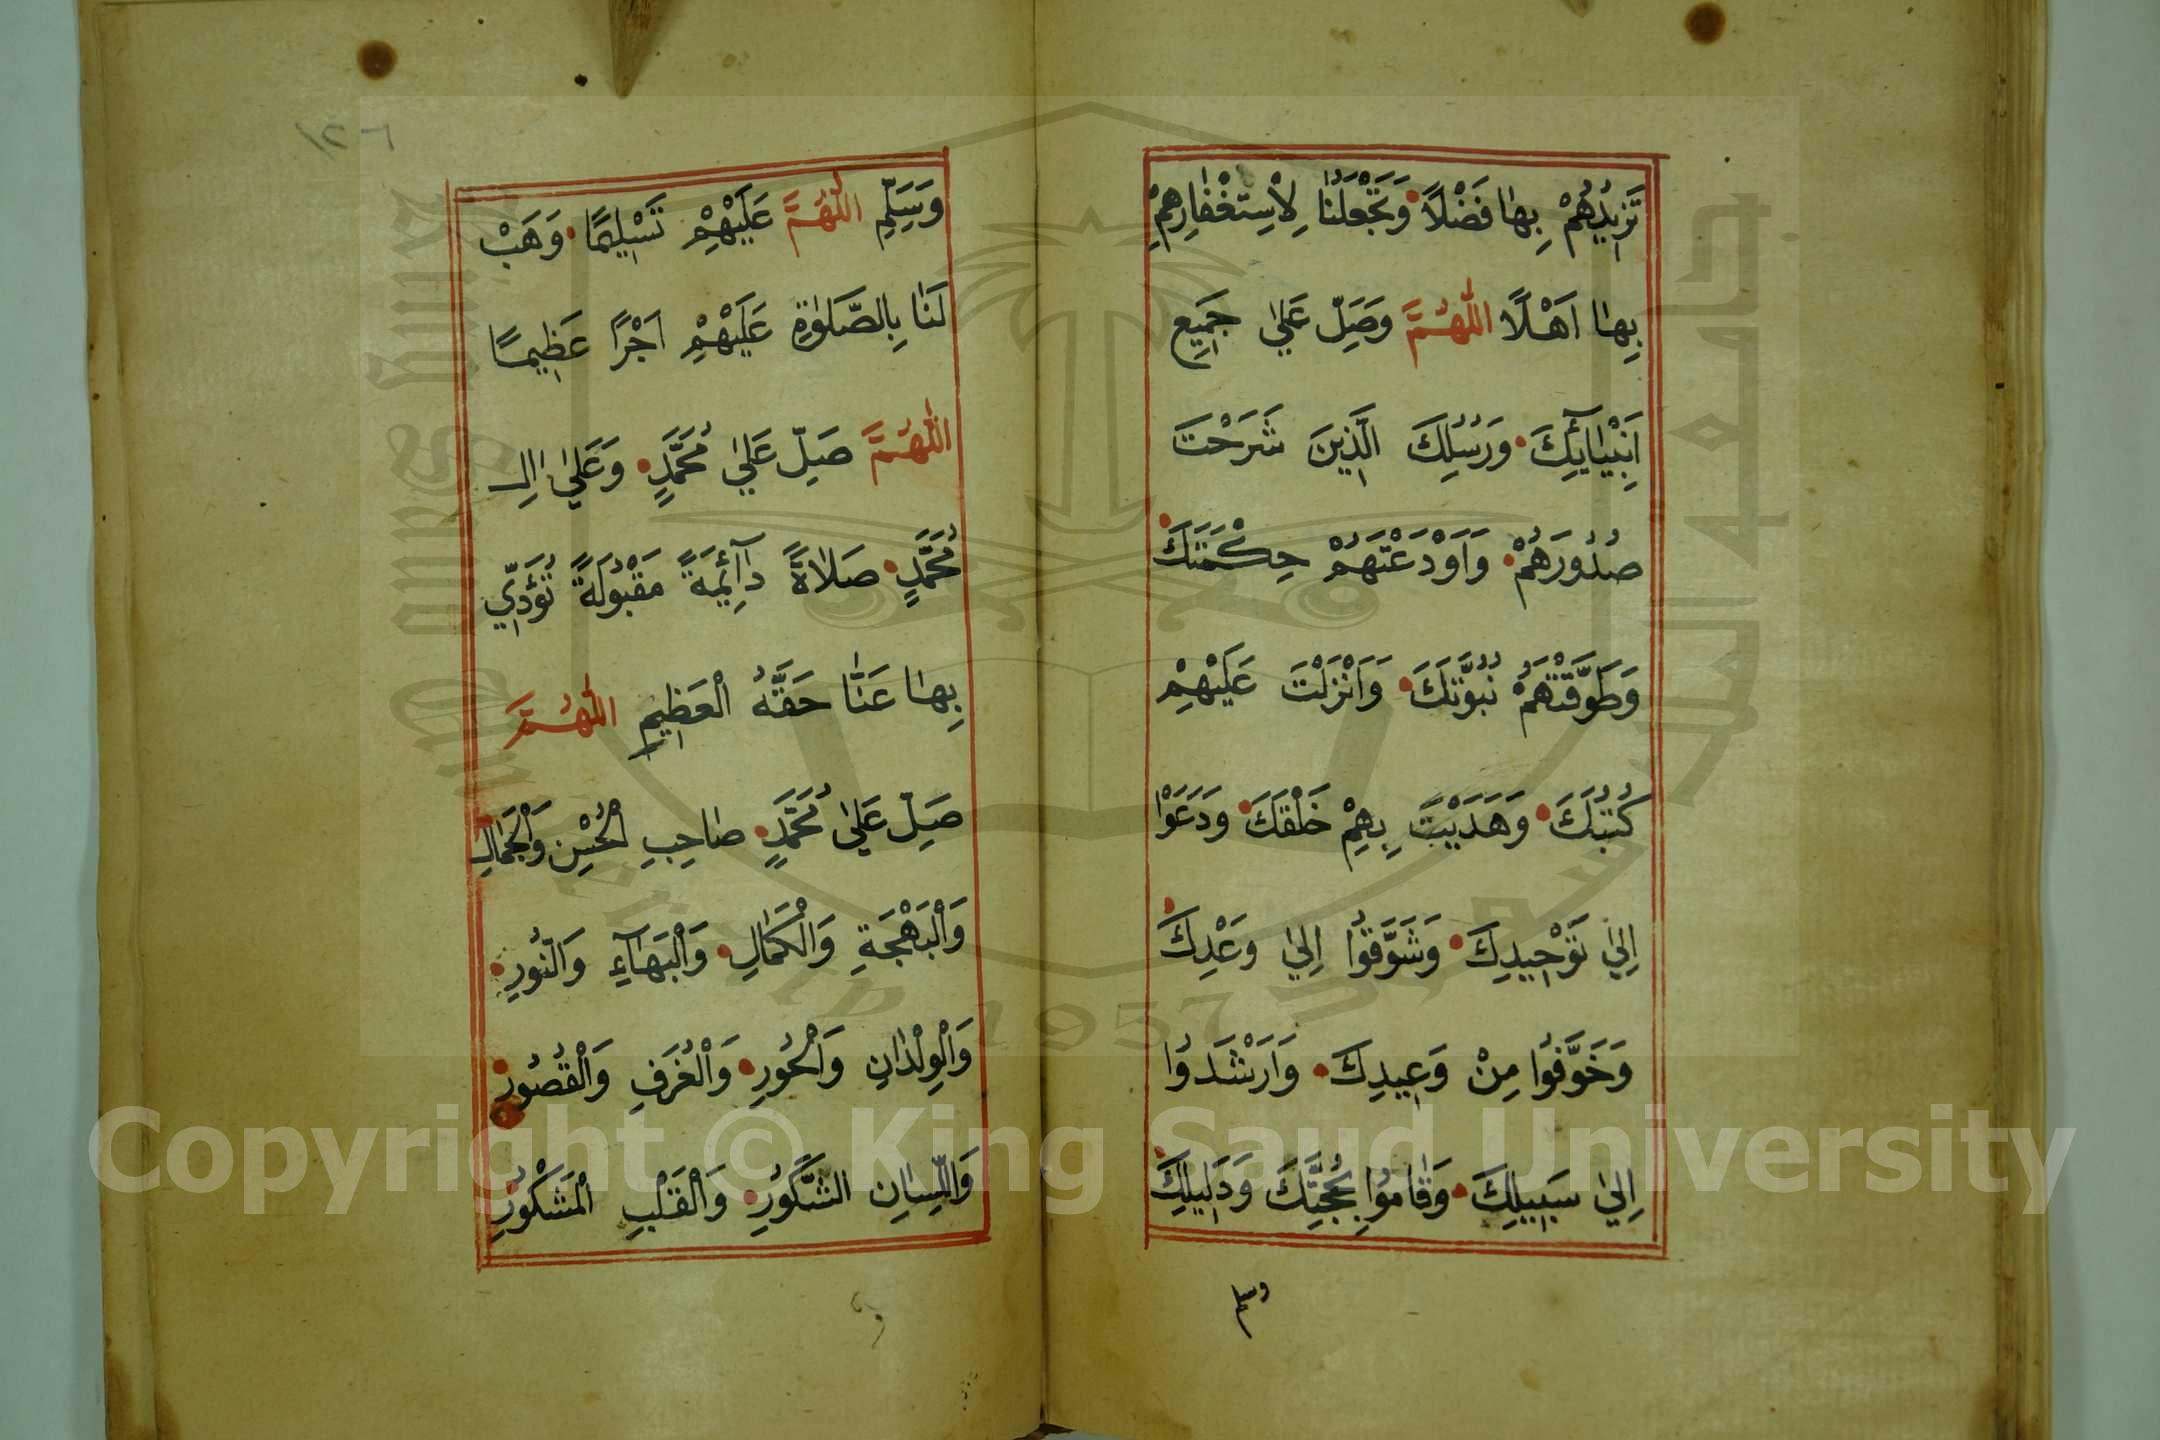 تَزِيدُهُمْ بِهٰا فَضْلًا وَتَجْعَلَنٰا لِاسْتِغْفٰارِهِمْ
بِهٰا اَهْلًا اَللّٰهُمَّ وَصَلِّ عَلٰي جَمِيعِ
اَنْبِيٰآئِكَ وَرُسُلِكَ الَّذِينَ شَرَحْتَ
صُدُورَهُمْ وَاَوْدَعْتَهُمْ حِكْمَتَكَ
وَطَوَّقْتَهُمْ نُبُوَّتَكَ وَاَنْزَلْتَ عَلَيْهِمْ
كُتُبَكَ وَهَدَيْتَ بِهِمْ خَلْقَكَ وَدَعَوْا
اِلٰي تَوْحِيدِكَ وَشَوَّقُوا اِلٰي وَعْدِكَ
وَخَوَّفُوا مِنْ وَعِيدِكَ وَاَرْشَدُوا
اِلٰي سَبِيلِكَ وَقٰامُوا بِحُجَّتِكَ وَدَلِيلِكَ
وَسَلِّمِ اللّٰهُمَّ عَلَيْهِمْ تَسْلِيمًا وَهَبْ
لَنٰا بِالصَّلٰوةِ عَلَيْهِمْ اَجْرًا عَظِيمًا
اَللّٰهُمَّ صَلِّ عَلٰي مُحَمَّدٍ وَعَلٰي اٰلِ
مُحَمَّدٍ صَلاٰةً دآئِمَةً مَقْبُولَةً تُؤَدِّي
بِهٰا عَنّٰا حَقَّهُ الْعَظِيمِ اَللّٰهُمَّ
صَلِّ عَلٰي مُحَمَّدٍ صٰاحِبِ الْحُسْنِ وَالْجَمٰالِ
وَالْبَهْجَةِ وَالْكَمٰالِ وَالْبَهٰآءِ وَالنُّورِ
وَالْوِلْدٰانِ وَالْحُورِ وَالْغُرَفِ وَالْقُصُورِ
وَاللِّسٰانِ الشَّكُورِ وَالْقَلْبِ الْمَشْكُورِ
Copyright © King Saud University
1957